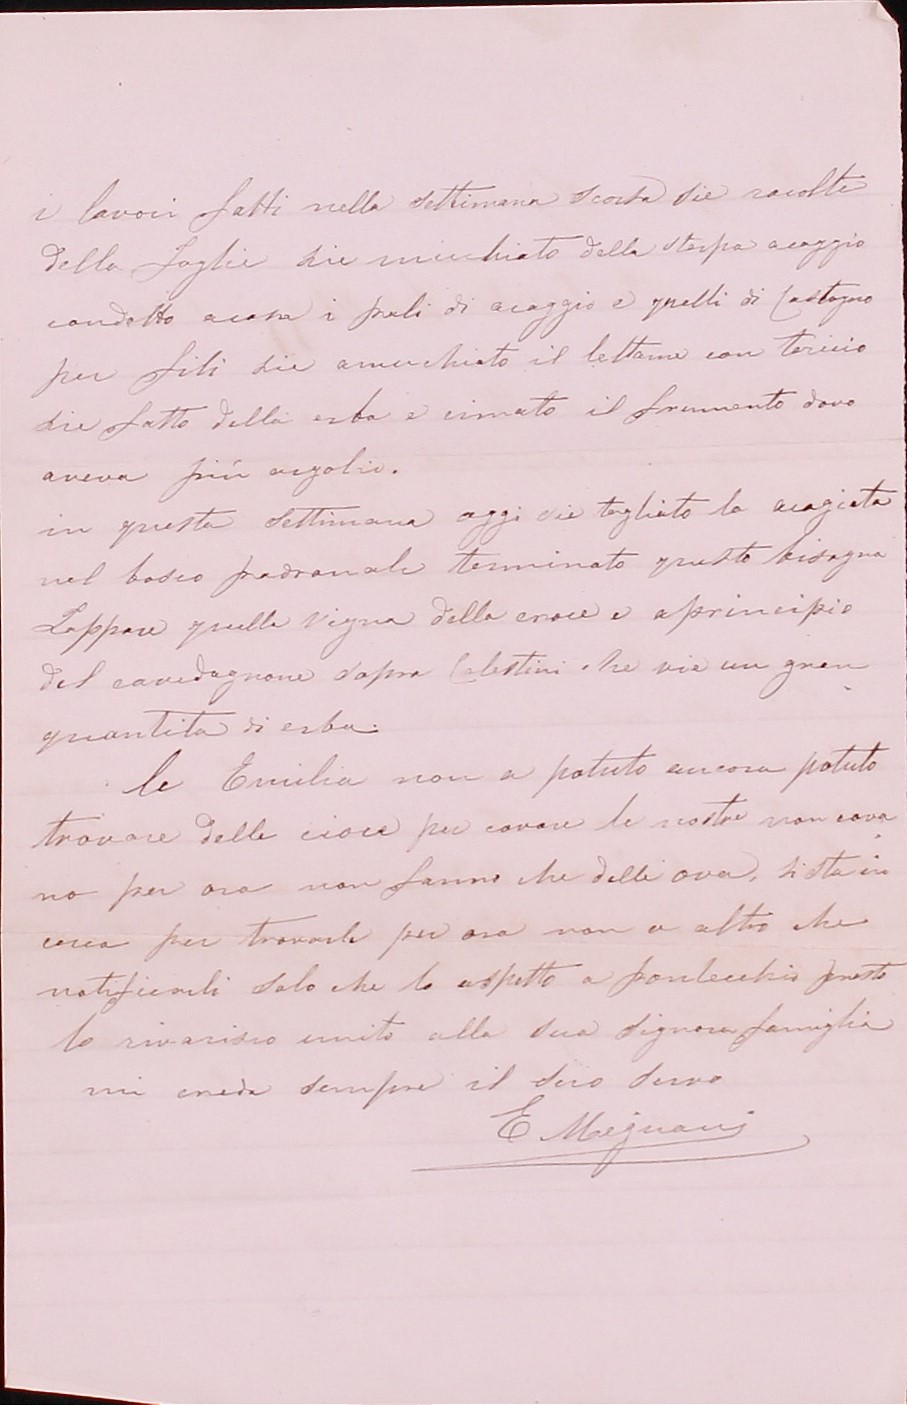 i lavori fatti nella settimana scorsa sie racolte
della foglie sie mucchiato della sterpa acaggio
condotto acasa i pali di acaggio e quelli di Castagno
per fili sie amucchiato il lettame con tericio
sie fatto della erba e cimato il frumento dove
aveva più
in questa settimana oggi sie tagliato la acagieta
nel bosco padronale terminato questo bisogna
Zappare quella vigna della croce e aprincipio
del cavedagnone sopra Celestini che vie un gran
quantita di erba.
la Emilia non a potuto ancora potuto
trovare delle cioce per covare le nostre non cova
no per ora non fanno che delle ova, si sta in
cerca per trovarle per ora non o altro che
notificarli solo che lo aspetto a pontecchio presto
lo riverisco unito alla sua Signora famiglia
mi creda sempre il suo servo
E Mignani